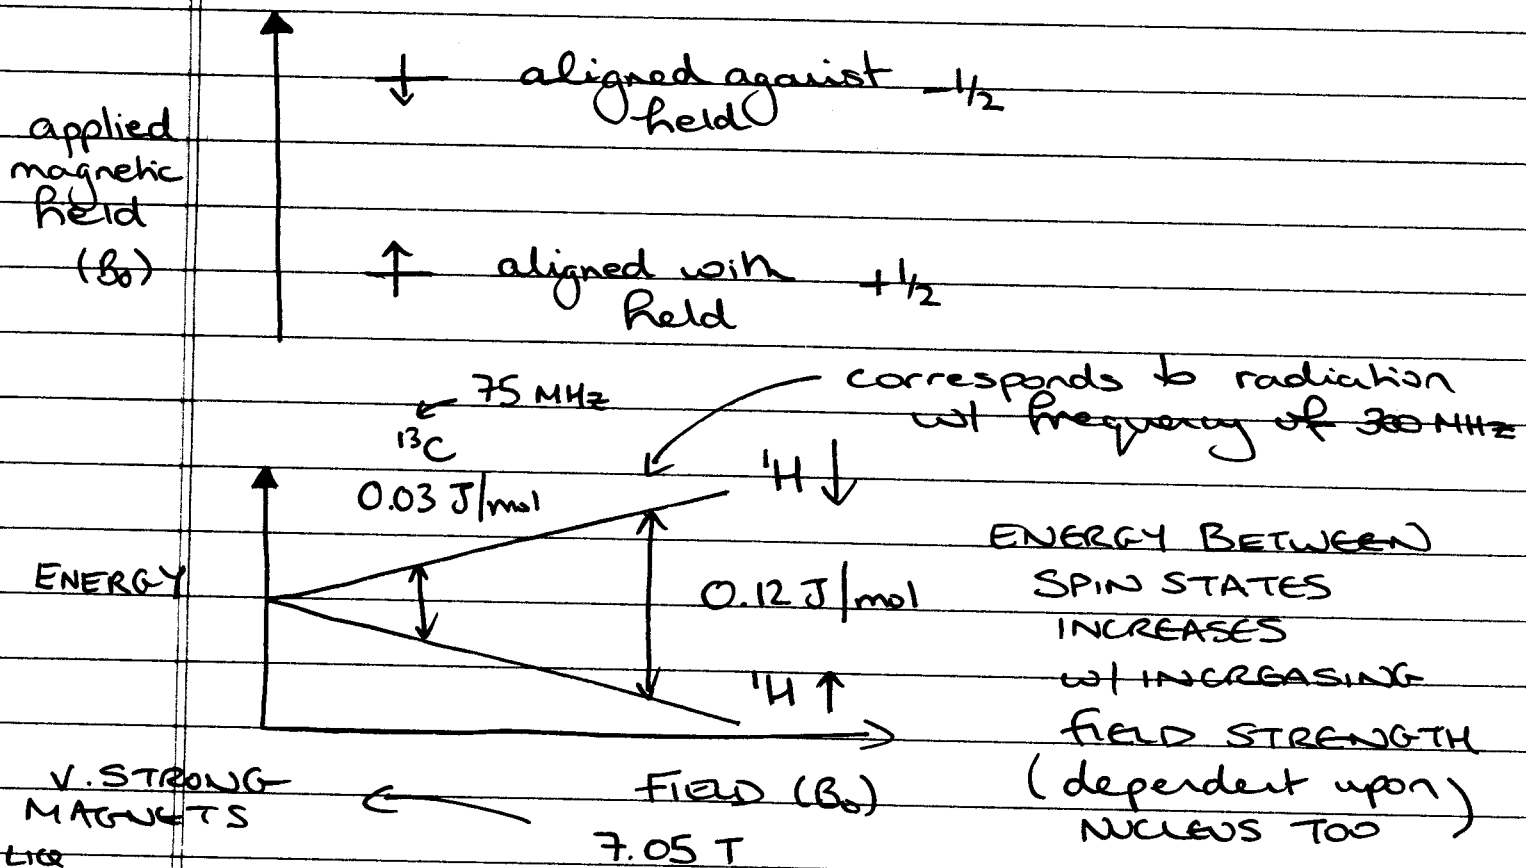 aligned against -1/2
field
applied
magnetic
field
(B₀)
aligned with +1/2
field
75 MHz
corresponds to radiation
w/ frequency of 300 MHz
¹³C
0.03 J/mol
¹H ↓
ENERGY
0.12 J/mol
¹H ↑
ENERGY BETWEEN
SPIN STATES
INCREASES
w/ INCREASING
FIELD STRENGTH
(dependent upon
NUCLEUS TOO)
V. STRONG
MAGNETS
FIELD (B₀)
7.05 T